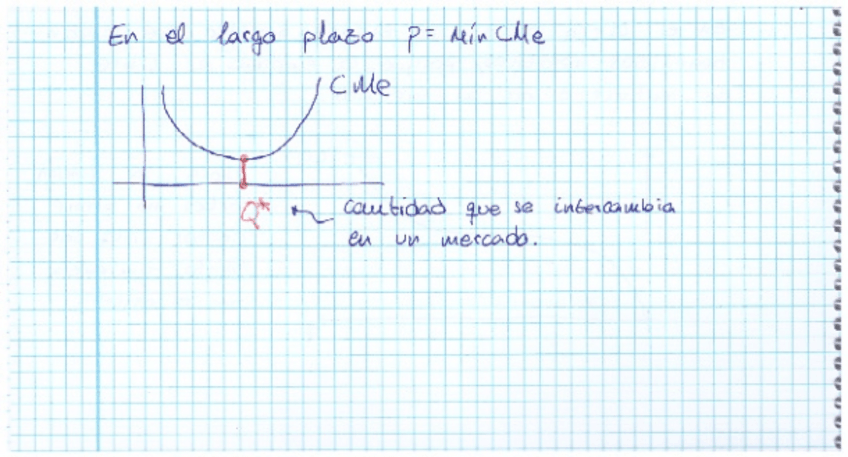 En el largo plazo P = Mín CMe
CMe
Q*
cantidad que se intercambia
en un mercado.